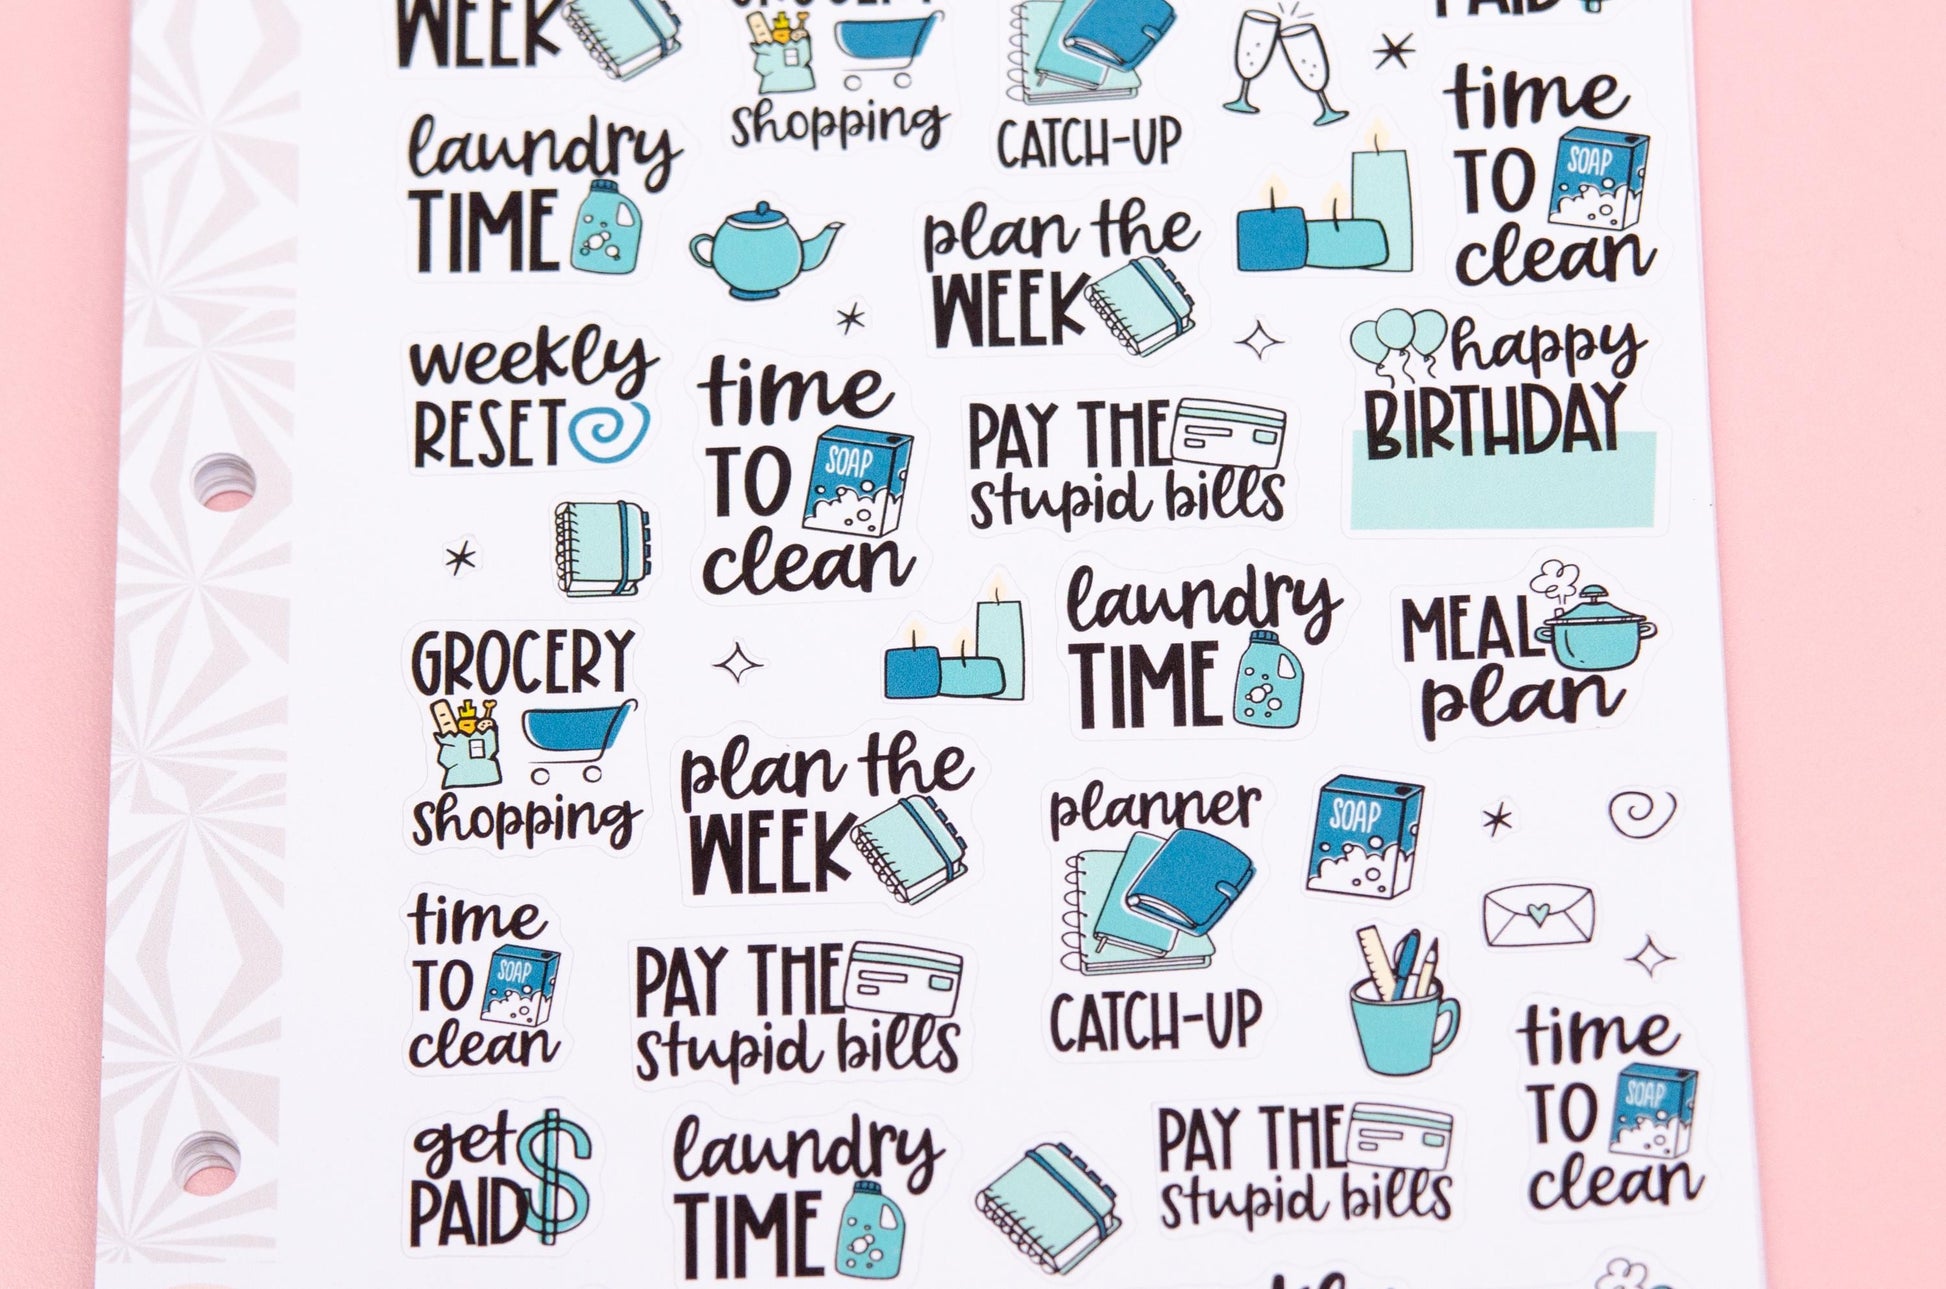 WEEK
GROCERY
shopping
CATCH-UP
PAID
laundry
TIME
plan the
WEEK
time
TO
SOAP
clean
weekly
RESET
time
TO
SOAP
clean
PAY THE
stupid bills
happy
BIRTHDAY
GROCERY
shopping
laundry
TIME
MEAL
plan
plan the
WEEK
planner
CATCH-UP
SOAP
time
TO
SOAP
clean
PAY THE
stupid bills
time
TO
SOAP
clean
get
PAID
$
laundry
TIME
PAY THE
stupid bills